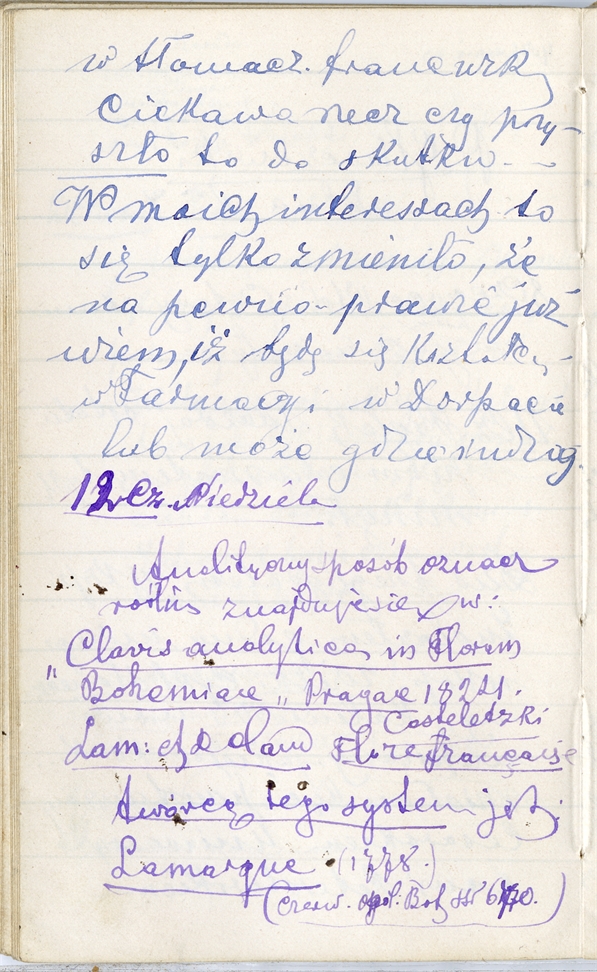 w tłomacz. francuzk
Ciekawa rzecz czy przy-
szło to do skutku --
W moich interessach to
się tylko zmieniło, że
na pewno - prawie już
wiem, iż będę się kształc.
w Farmacyi w Dorpacie
lub może gdzieindziej.
12 Cz. Niedziela
Analityczny sposób oznacz
roślin znajduje się w:
„Clavis analytica in Floram
Bohemiae„ Pragae 1824.
Costeletzki
Lam: et De Cand Flore française
twórcą tego system jest.
Lamarque (1778.)
(Czerw. ogól: Bot. str 670.)